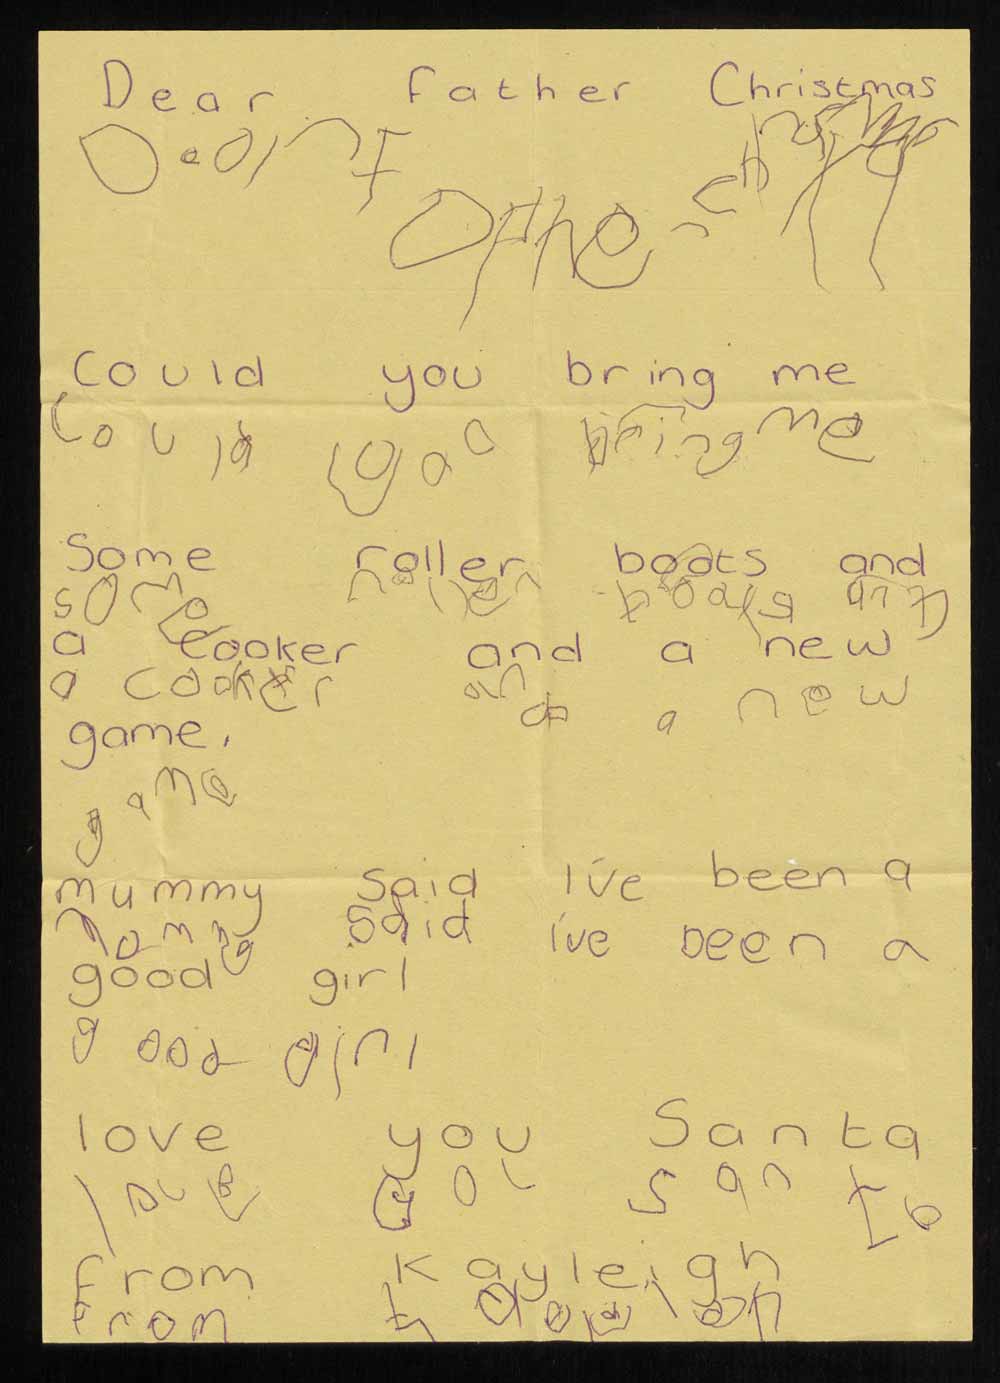 Dear Father Christmas
Dear F
ather Chr
Could you bring me
Could you bring me
Some roller boots and
some roller boots and
a Cooker and a new
a cooker and a new
game.
game
mummy Said I've been a
mummy said i've been a
good girl
good girl
love you Santa
love you santa
from Kayleigh
from Kayleigh